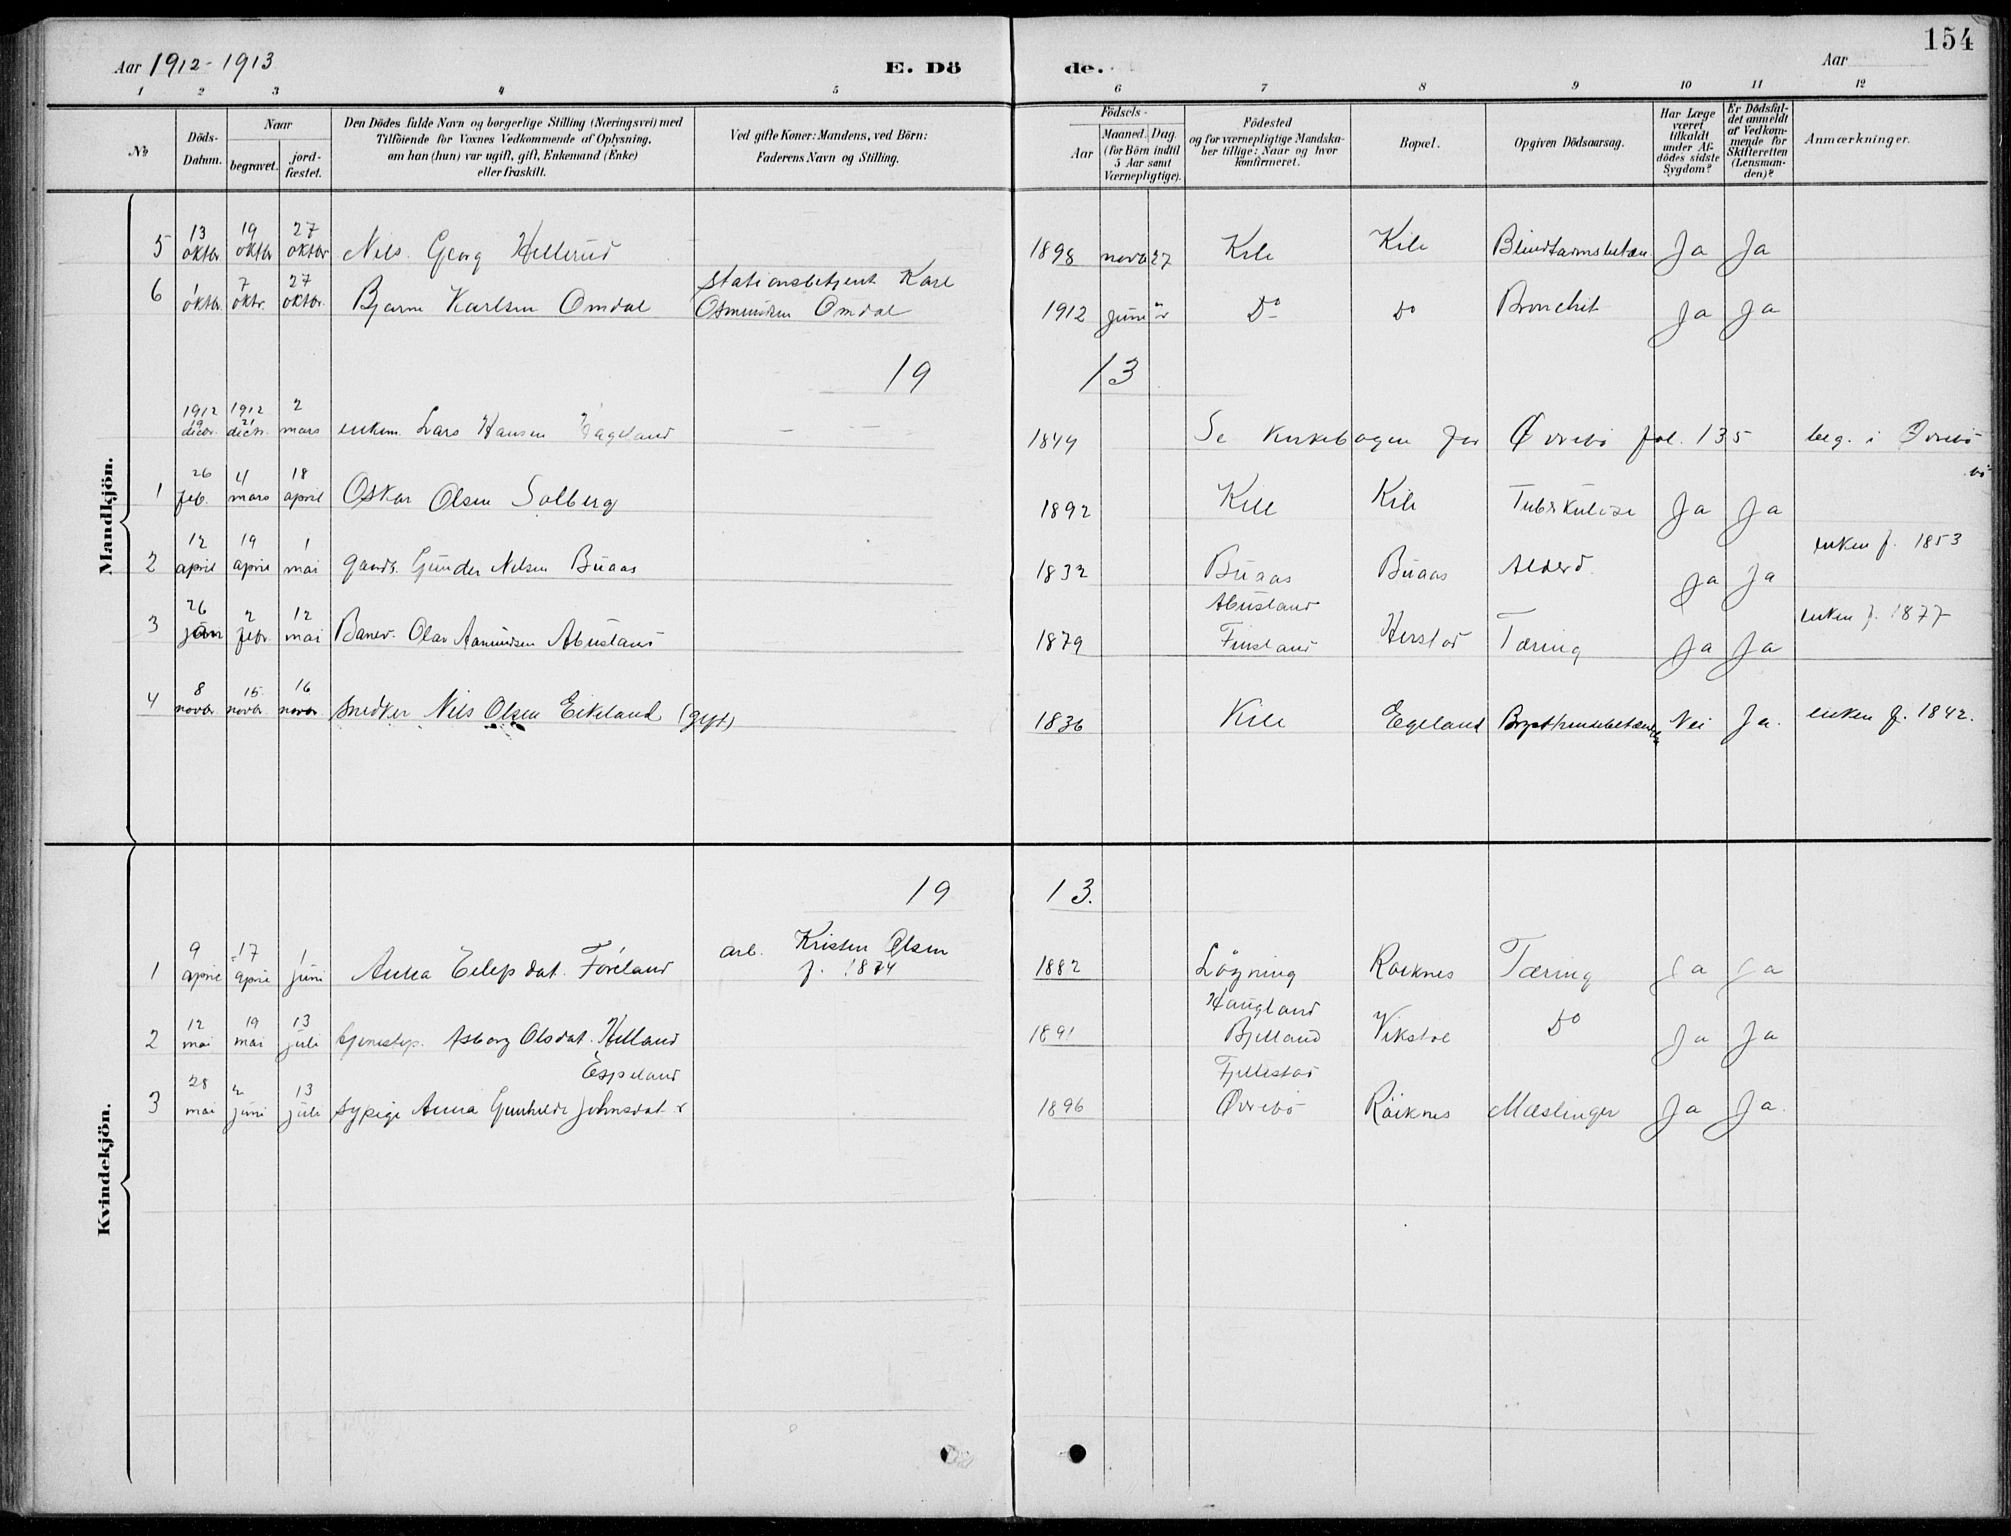 154
Aar 1912-1913
E. Dö
de.
Aar
1 2 3 4 5 6 7 8 9 10 11 12
№
Döds-
Datum.
Naar
begravet.
jord-
fæstet.
Den Dödes fulde Navn og borgerlige Stilling (Næringsvei) med
Tilföiende for Voxnes Vedkommende af Oplysning,
om han (hun) var ugift, gift, Enkemand (Enke)
eller fraskilt.
Ved gifte Koner: Mandens, ved Börn:
Faderens Navn og Stilling.
Födsels-
Aar
Maaned. Dag.
(for Börn indtil
5 Aar samt
Værnepligtige).
Födested
og for værnepligtige Mandska-
ber tillige: Naar og hvor
konfirmeret.
Bopæl.
Opgiven Dödsaarsag.
Har Læge
været
tilkaldt
under Af-
dödes sidste
Sygdom?
Er Dödsfal-
det anmeldt
af Vedkom-
mende for
Skifteretten
(Lensman-
den)?
Anmærkninger.
Mandkjön.
5 13 oktbr 19 oktbr 27 oktbr Nils Georg Hellerud 1898 novb 27 Kile Kile Blindtarmsbetæn. Ja Ja
6 1 oktbr. 7 oktr. 27 oktbr. Bjarne Karlsen Omdal Stationsbetjent Karl
Osmundsen Omdal 1912 juni Do Do Bronchit Ja Ja
19 13
1912 19 decbr. 1912 21 decbr. 2 mars enkem. Lars Hansen Egeland — — 1849 Se Kirkebogen for Øvrebö fol. 135 beg. i Øvrebö
1 26 feb. 4 mars 18 april Oskar Olsen Solberg 1892 Kile Kile Tuberkulose Ja Ja
2 12 april 19 april 1 mai gaardb. Gunder Nilsen Buaas 1832 Buaas Buaas Alderd. Ja Ja enken f. 1853
3 26 jan 2 febr. 12 mai Banev. Olav Aamundsen Abusland 1879 Abusland
Finsland Herstad Tæring Ja Ja enken f. 1877
4 8 novbr 15 novbr. 16 novbr snedker Nils Olsen Eikeland (gift) 1836 Kile Egeland Brysthindebetændelse Nei Ja. enken f. 1842.
Kvindekjön.
19 13.
1 9 april 17 april 1 juni Anna Eilefsdat. Föreland arb. Kristen Olsen
f. 1874 1882 Lögning Röiknes Tæring Ja Ja
2 12 mai 19 mai 13 juli tjenestep. Asborg Olsdat. Helland 1891 Haugland
Bjelland Vikstöl Do Ja Ja
3 28 mai 2 juni 13 juli sypige Anna Gunhilde Johnsdat.
Espeland 1896 Fjellestad
Øvrebö Röiknes Mæslinger Ja Ja.